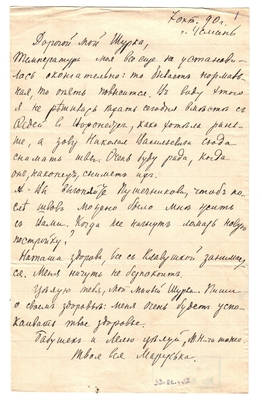 7 окт. 90 г.!
г.
Дорогой мой Шурка,
Температура моя все еще не установи-
лась окончательно: то бывает нормаль-
ная, то опять повысится. В виду этого
я не решилась ехать сегодня
в Воронеж, как хотела рань-
ше, а зову Николая Васильевича сюда
снимать швы. Очень буду рада, когда
он, наконец, снимет их.
чтоб по-
можно было мне уехать
с Вами. Когда же начнут новую
постройку?
Наташа здорова, все с Клавушкой занимает-
ся. Меня ничуть не беспокоит.
Целую тебя, мой милый Шурка. Пиши
о своем здоровье: меня очень будет успо-
каивать твое здоровье.
и Лелю целуй, тоже.
Твоя вся Маруська.